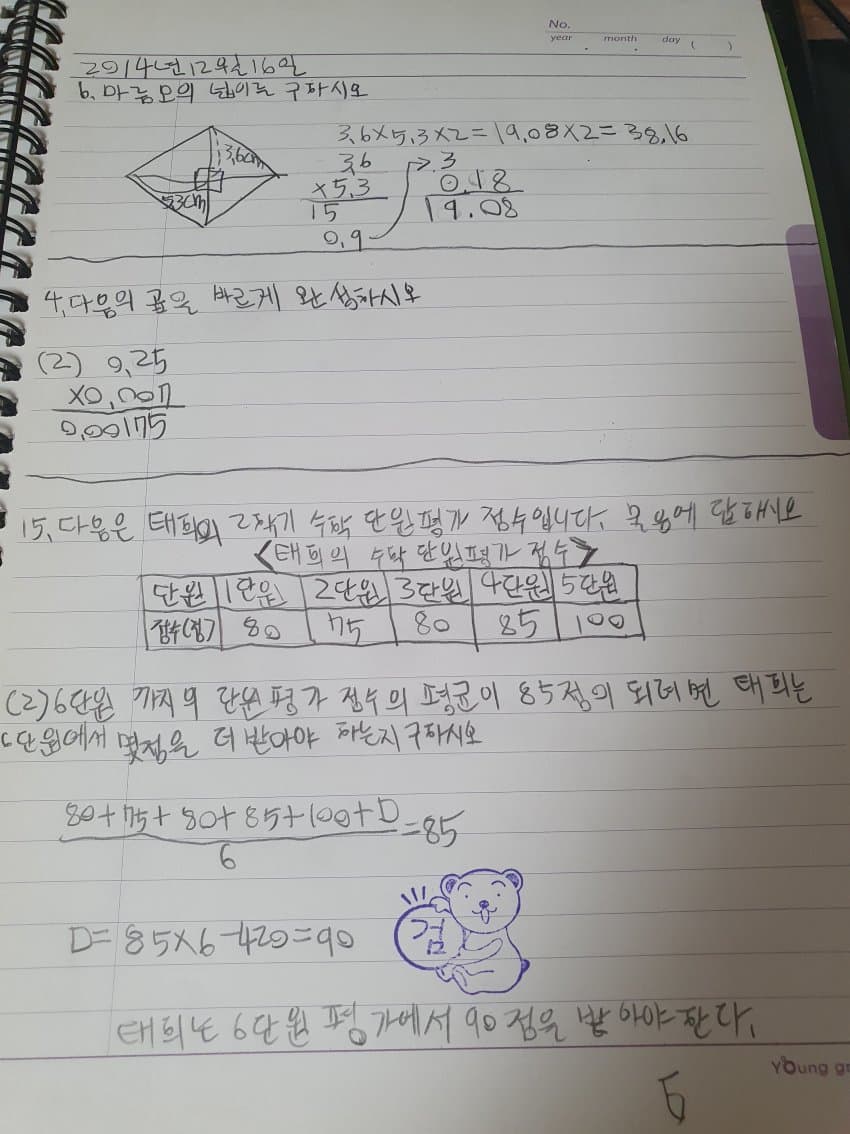 No.
year . month . day ( )
2014년12월16일
6. 마름모의 넓이를 구하시오
3.6×5.3×2=19.08×2=38.16
3.6cm
5.3cm
3.6
×5.3
15
0.9
3
0.18
19.08
4. 다음의 곱을 바르게 완성하시오
(2) 0.25
×0.007
0.00175
15. 다음은 태희의 2학기 수학 단원평가 점수입니다. 물음에 답해시오
<태희의 수학 단원평가 점수>
단원 1단원 2단원 3단원 4단원 5단원
점수(점) 80 75 80 85 100
(2) 6단원 까지의 단원평가 점수의 평균이 85점이 되려면 태희는
6단원에서 몇점을 더 받아야 하는지 구하시오
80+75+80+85+100+D
=85
6
D= 85×6-420=90
검
태희는 6단원 평가에서 90점을 받아야 한다.
Young
5